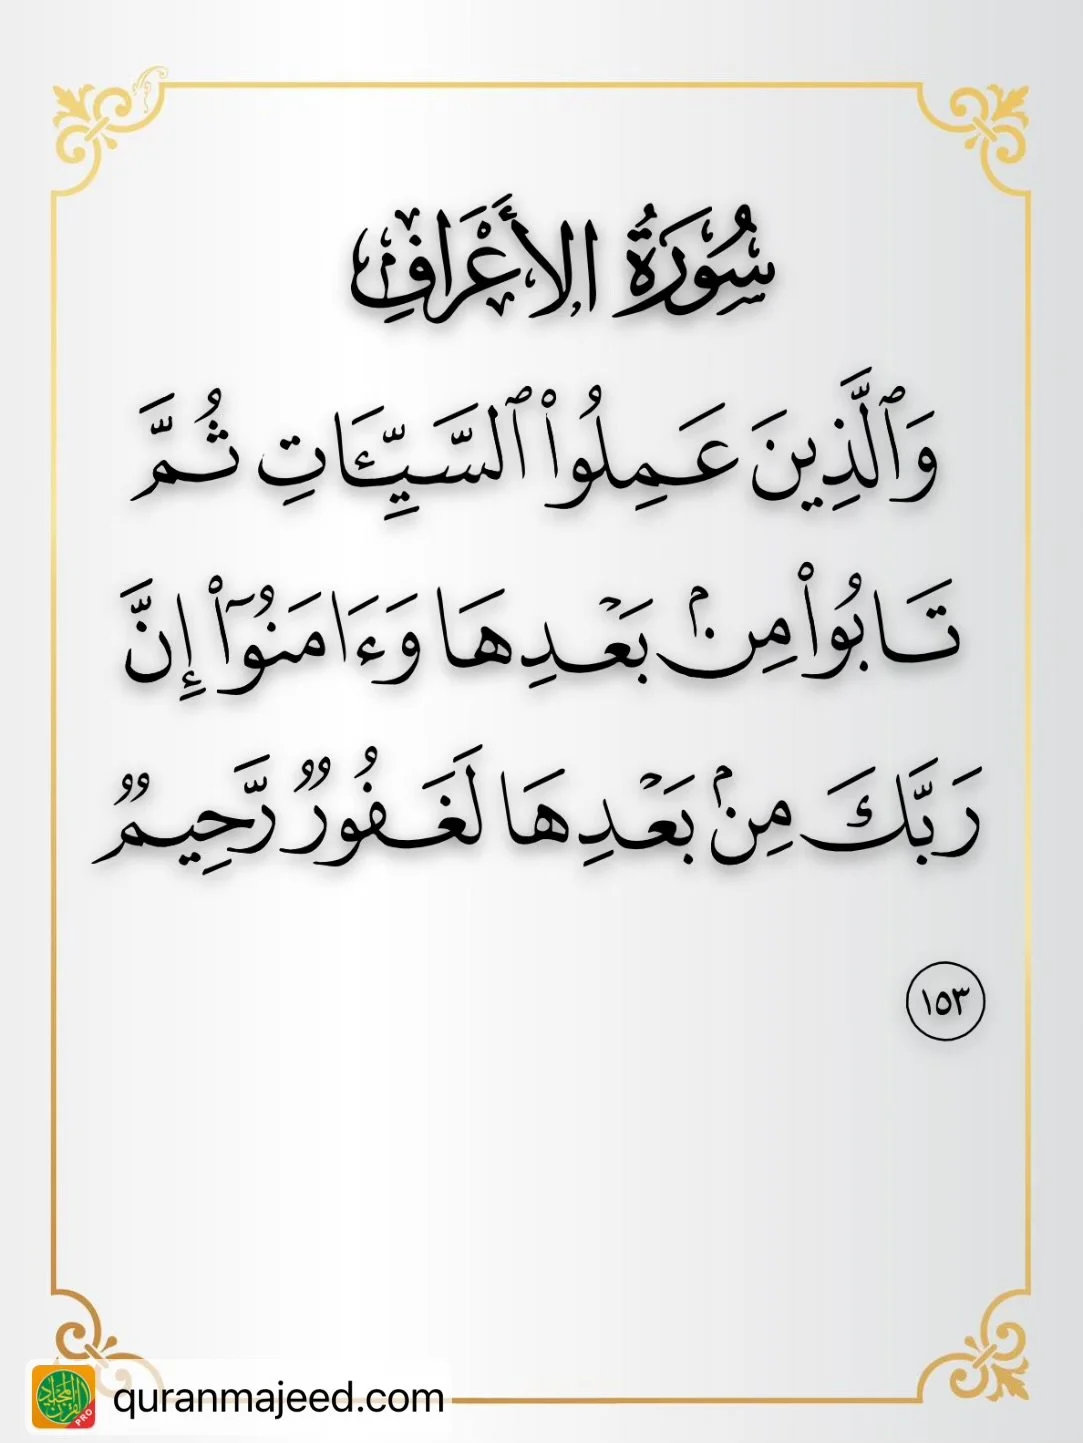 سُورَةُ الأَعْرَافِ
وَٱلَّذِينَ عَمِلُوا۟ ٱلسَّيِّـَٔاتِ ثُمَّ
تَابُوا۟ مِنۢ بَعْدِهَا وَءَامَنُوٓا۟ إِنَّ
رَبَّكَ مِنۢ بَعْدِهَا لَغَفُورٌ رَّحِيمٌ
١٥٣
quranmajeed.com
PRO